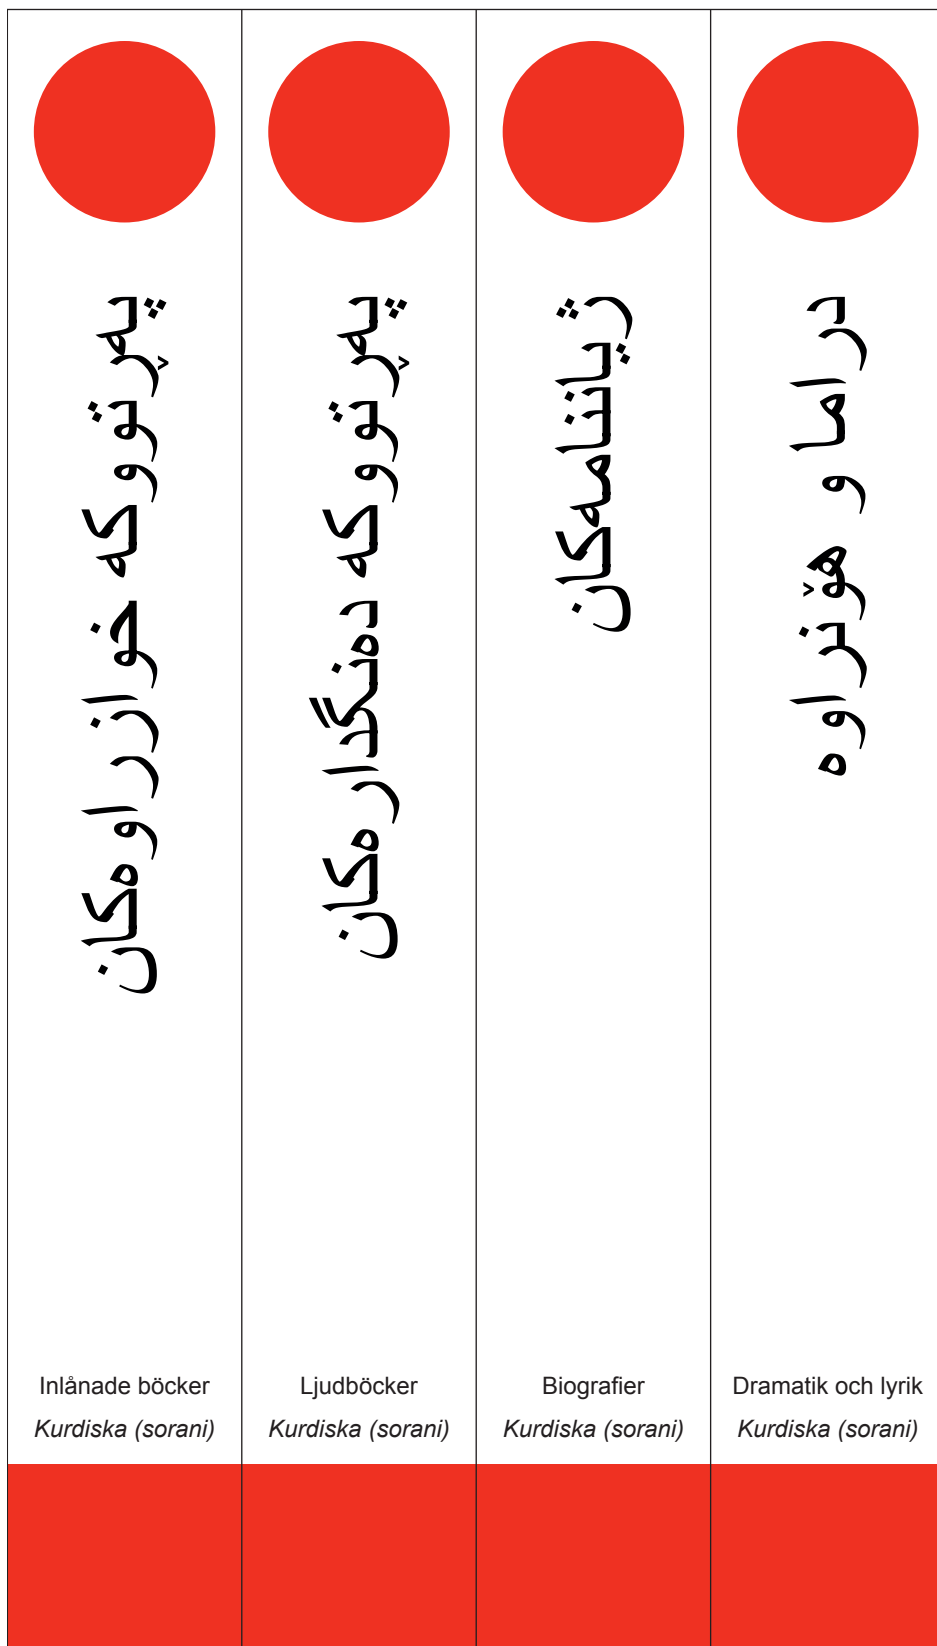 پەڕتووکە خوازراوەکان
Inlånade böcker
Kurdiska (sorani)
پەڕتووکە دەنگدارەکان
Ljudböcker
Kurdiska (sorani)
ژیاننامەکان
Biografier
Kurdiska (sorani)
دراما و هۆنراوە
Dramatik och lyrik
Kurdiska (sorani)